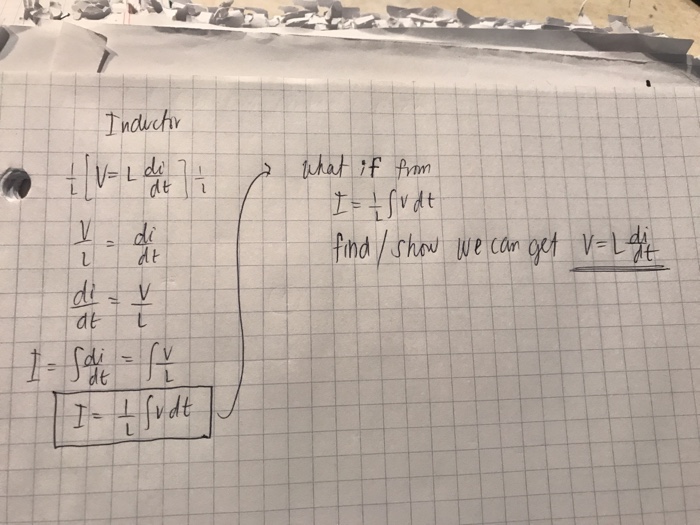 Inductor
1/L [V = L di/dt] 1/L
V/L = di/dt
di/dt = V/L
I = ∫ di/dt = ∫ V/L
I = 1/L ∫ v dt
what if from
I = 1/L ∫ v dt
find / show we can get V = L di/dt